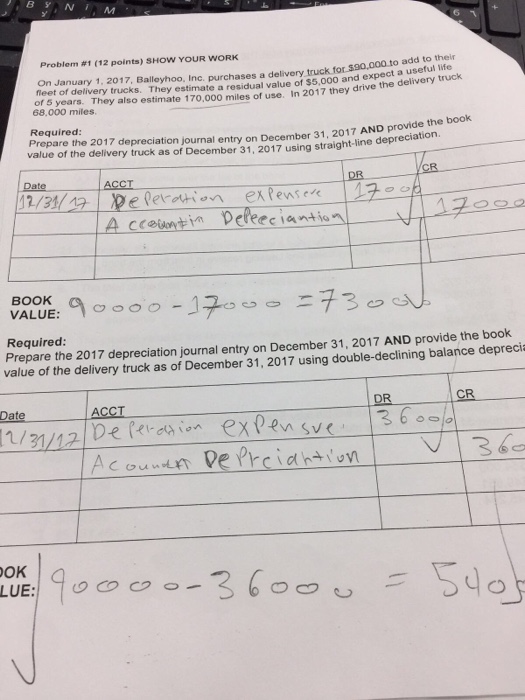 Problem #1 (12 points) SHOW YOUR WORK
On January 1, 2017, Balleyhoo, Inc. purchases a delivery truck for $90,000 to add to their
fleet of delivery trucks. They estimate a residual value of $5,000 and expect a useful life
of 5 years. They also estimate 170,000 miles of use. In 2017 they drive the delivery truck
68,000 miles.
Required:
Prepare the 2017 depreciation journal entry on December 31, 2017 AND provide the book
value of the delivery truck as of December 31, 2017 using straight-line depreciation.
Date ACCT DR CR
12/31/17 Deperation expensere 17000
Accountin Depeeciantion 17000
BOOK
VALUE: 90000-17000=73000
Required:
Prepare the 2017 depreciation journal entry on December 31, 2017 AND provide the book
value of the delivery truck as of December 31, 2017 using double-declining balance deprecia
Date ACCT DR CR
12/31/17 Deperation expensve 36000
Acountin Depreciantion 360
OOK
LUE: 90000-36000 = 540